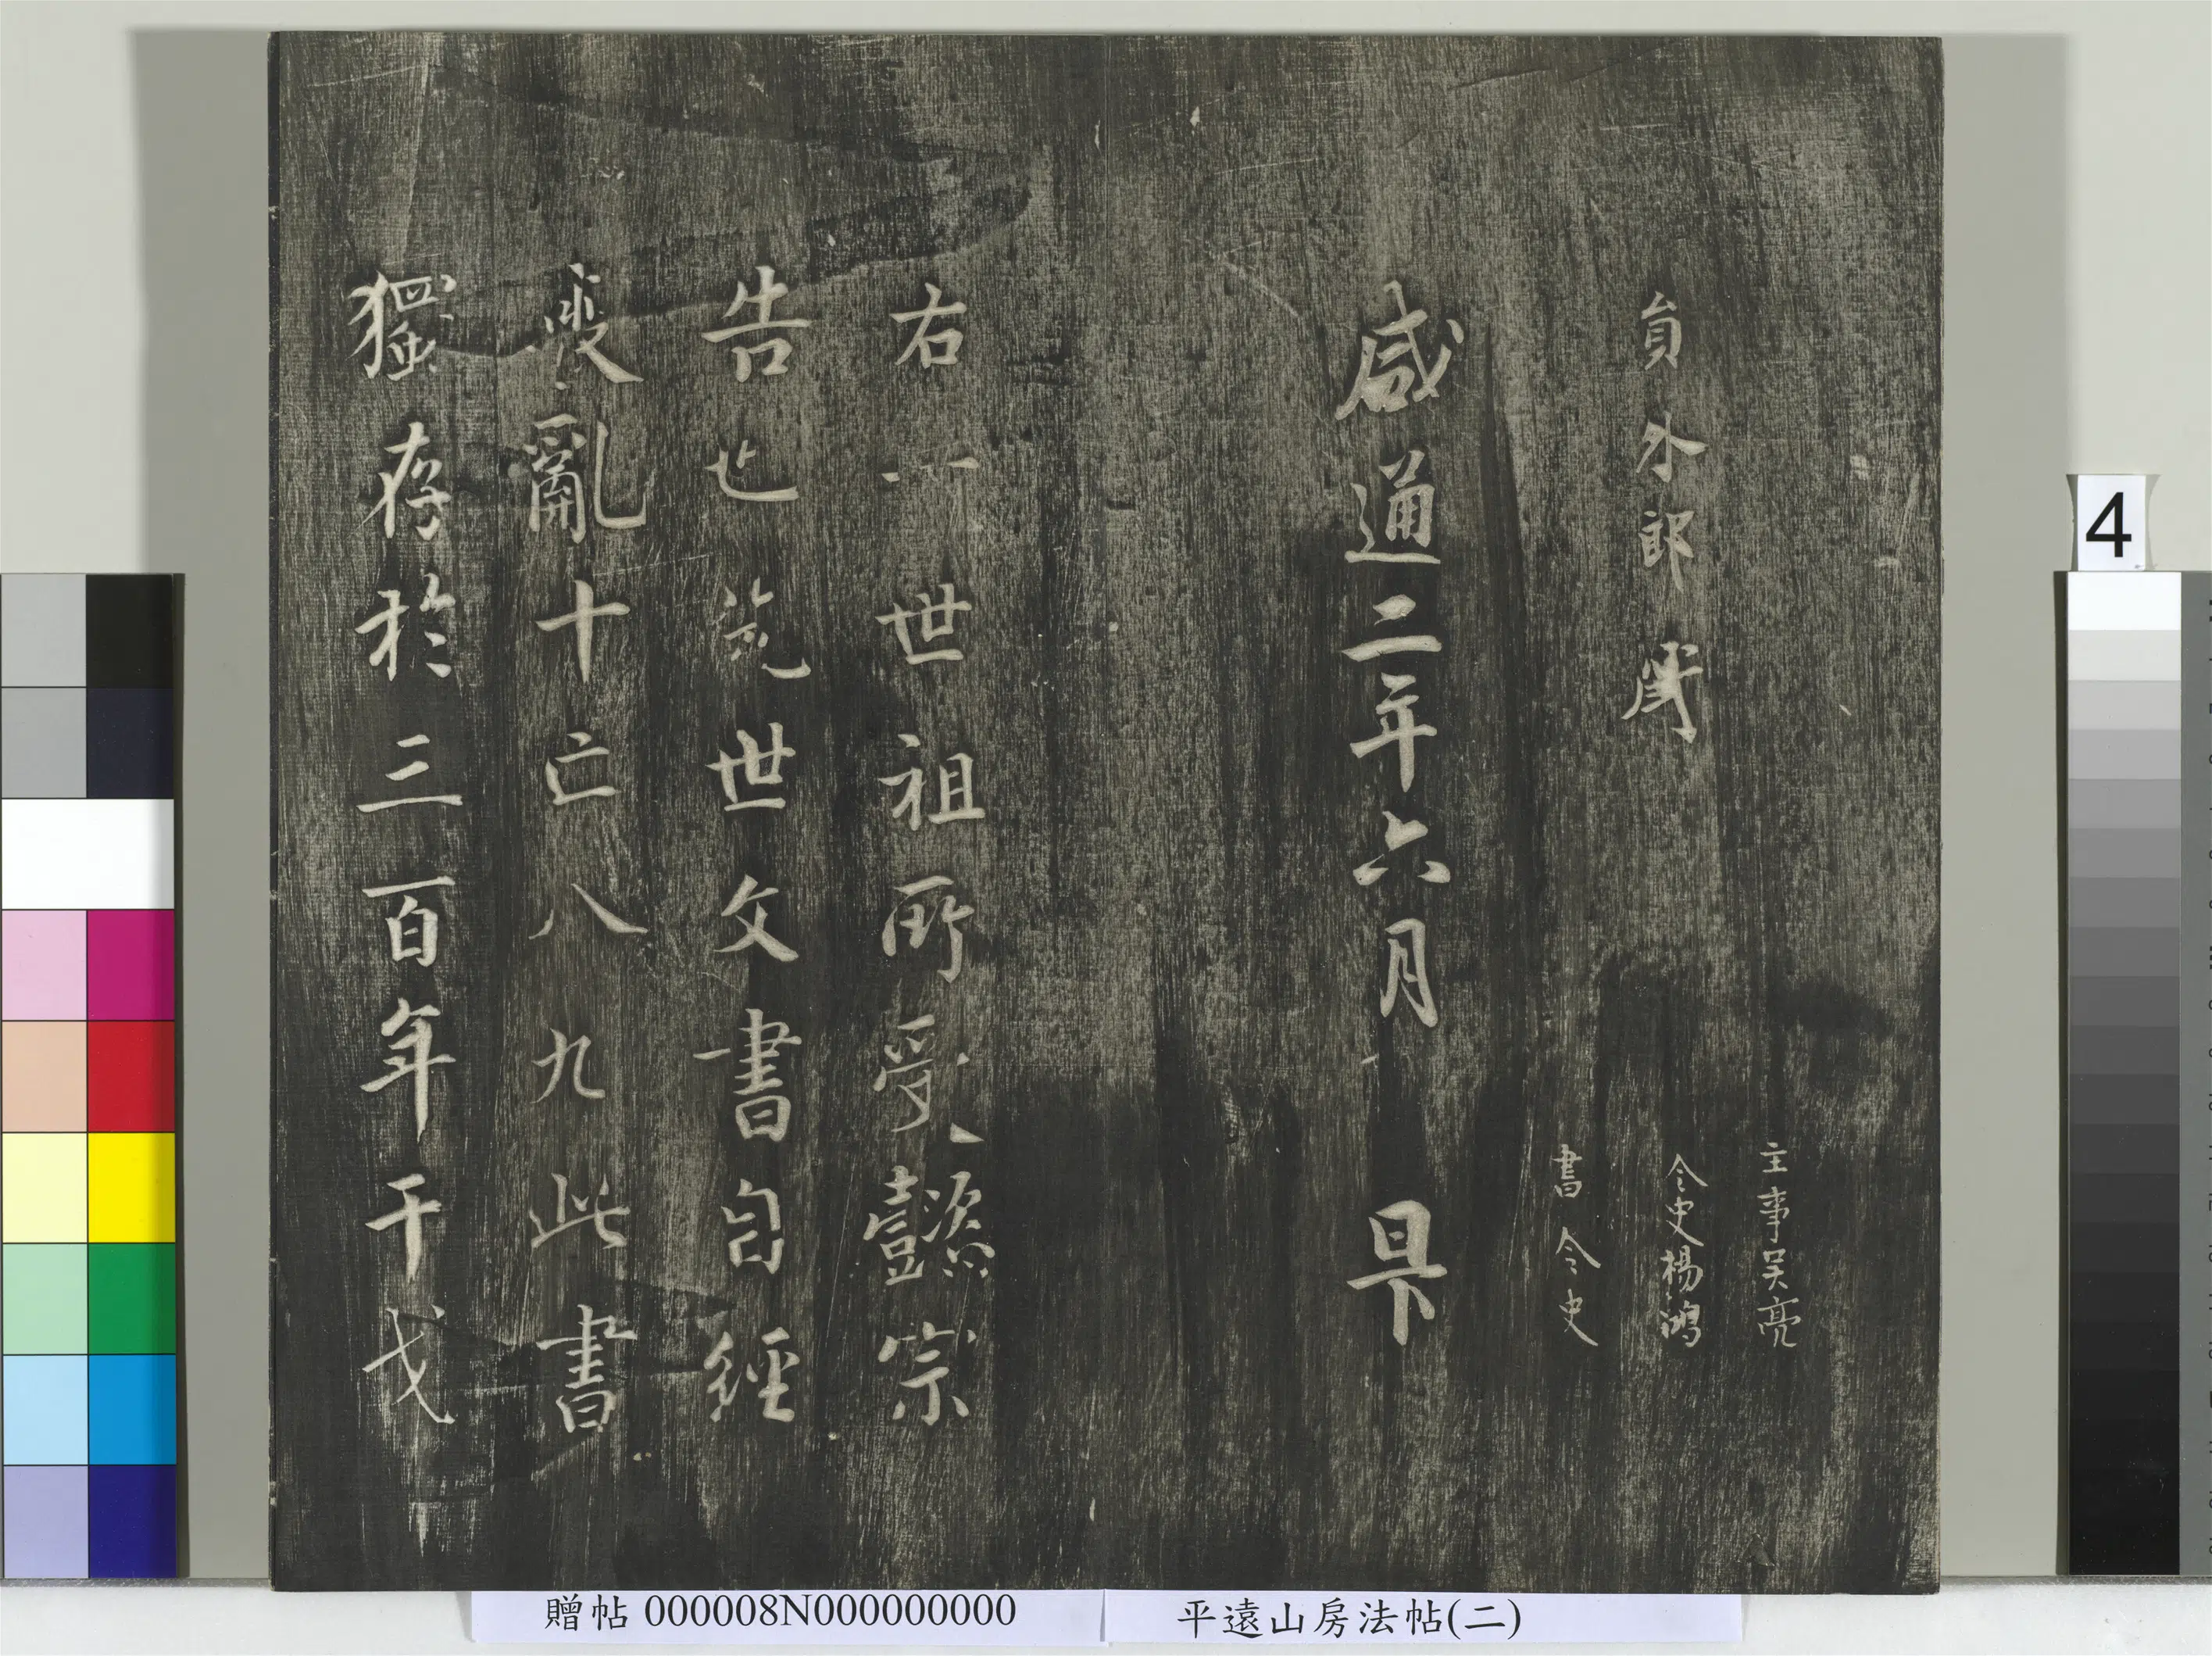 主事吳亮
員外郎
令史楊鴻
書令史
咸通二年六月 日下
右 世祖所受懿宗
告也范世文書自經
喪亂十亡八九此書
獨存於三百年干戈
4
平遠山房法帖(二)
贈帖 000008N000000000